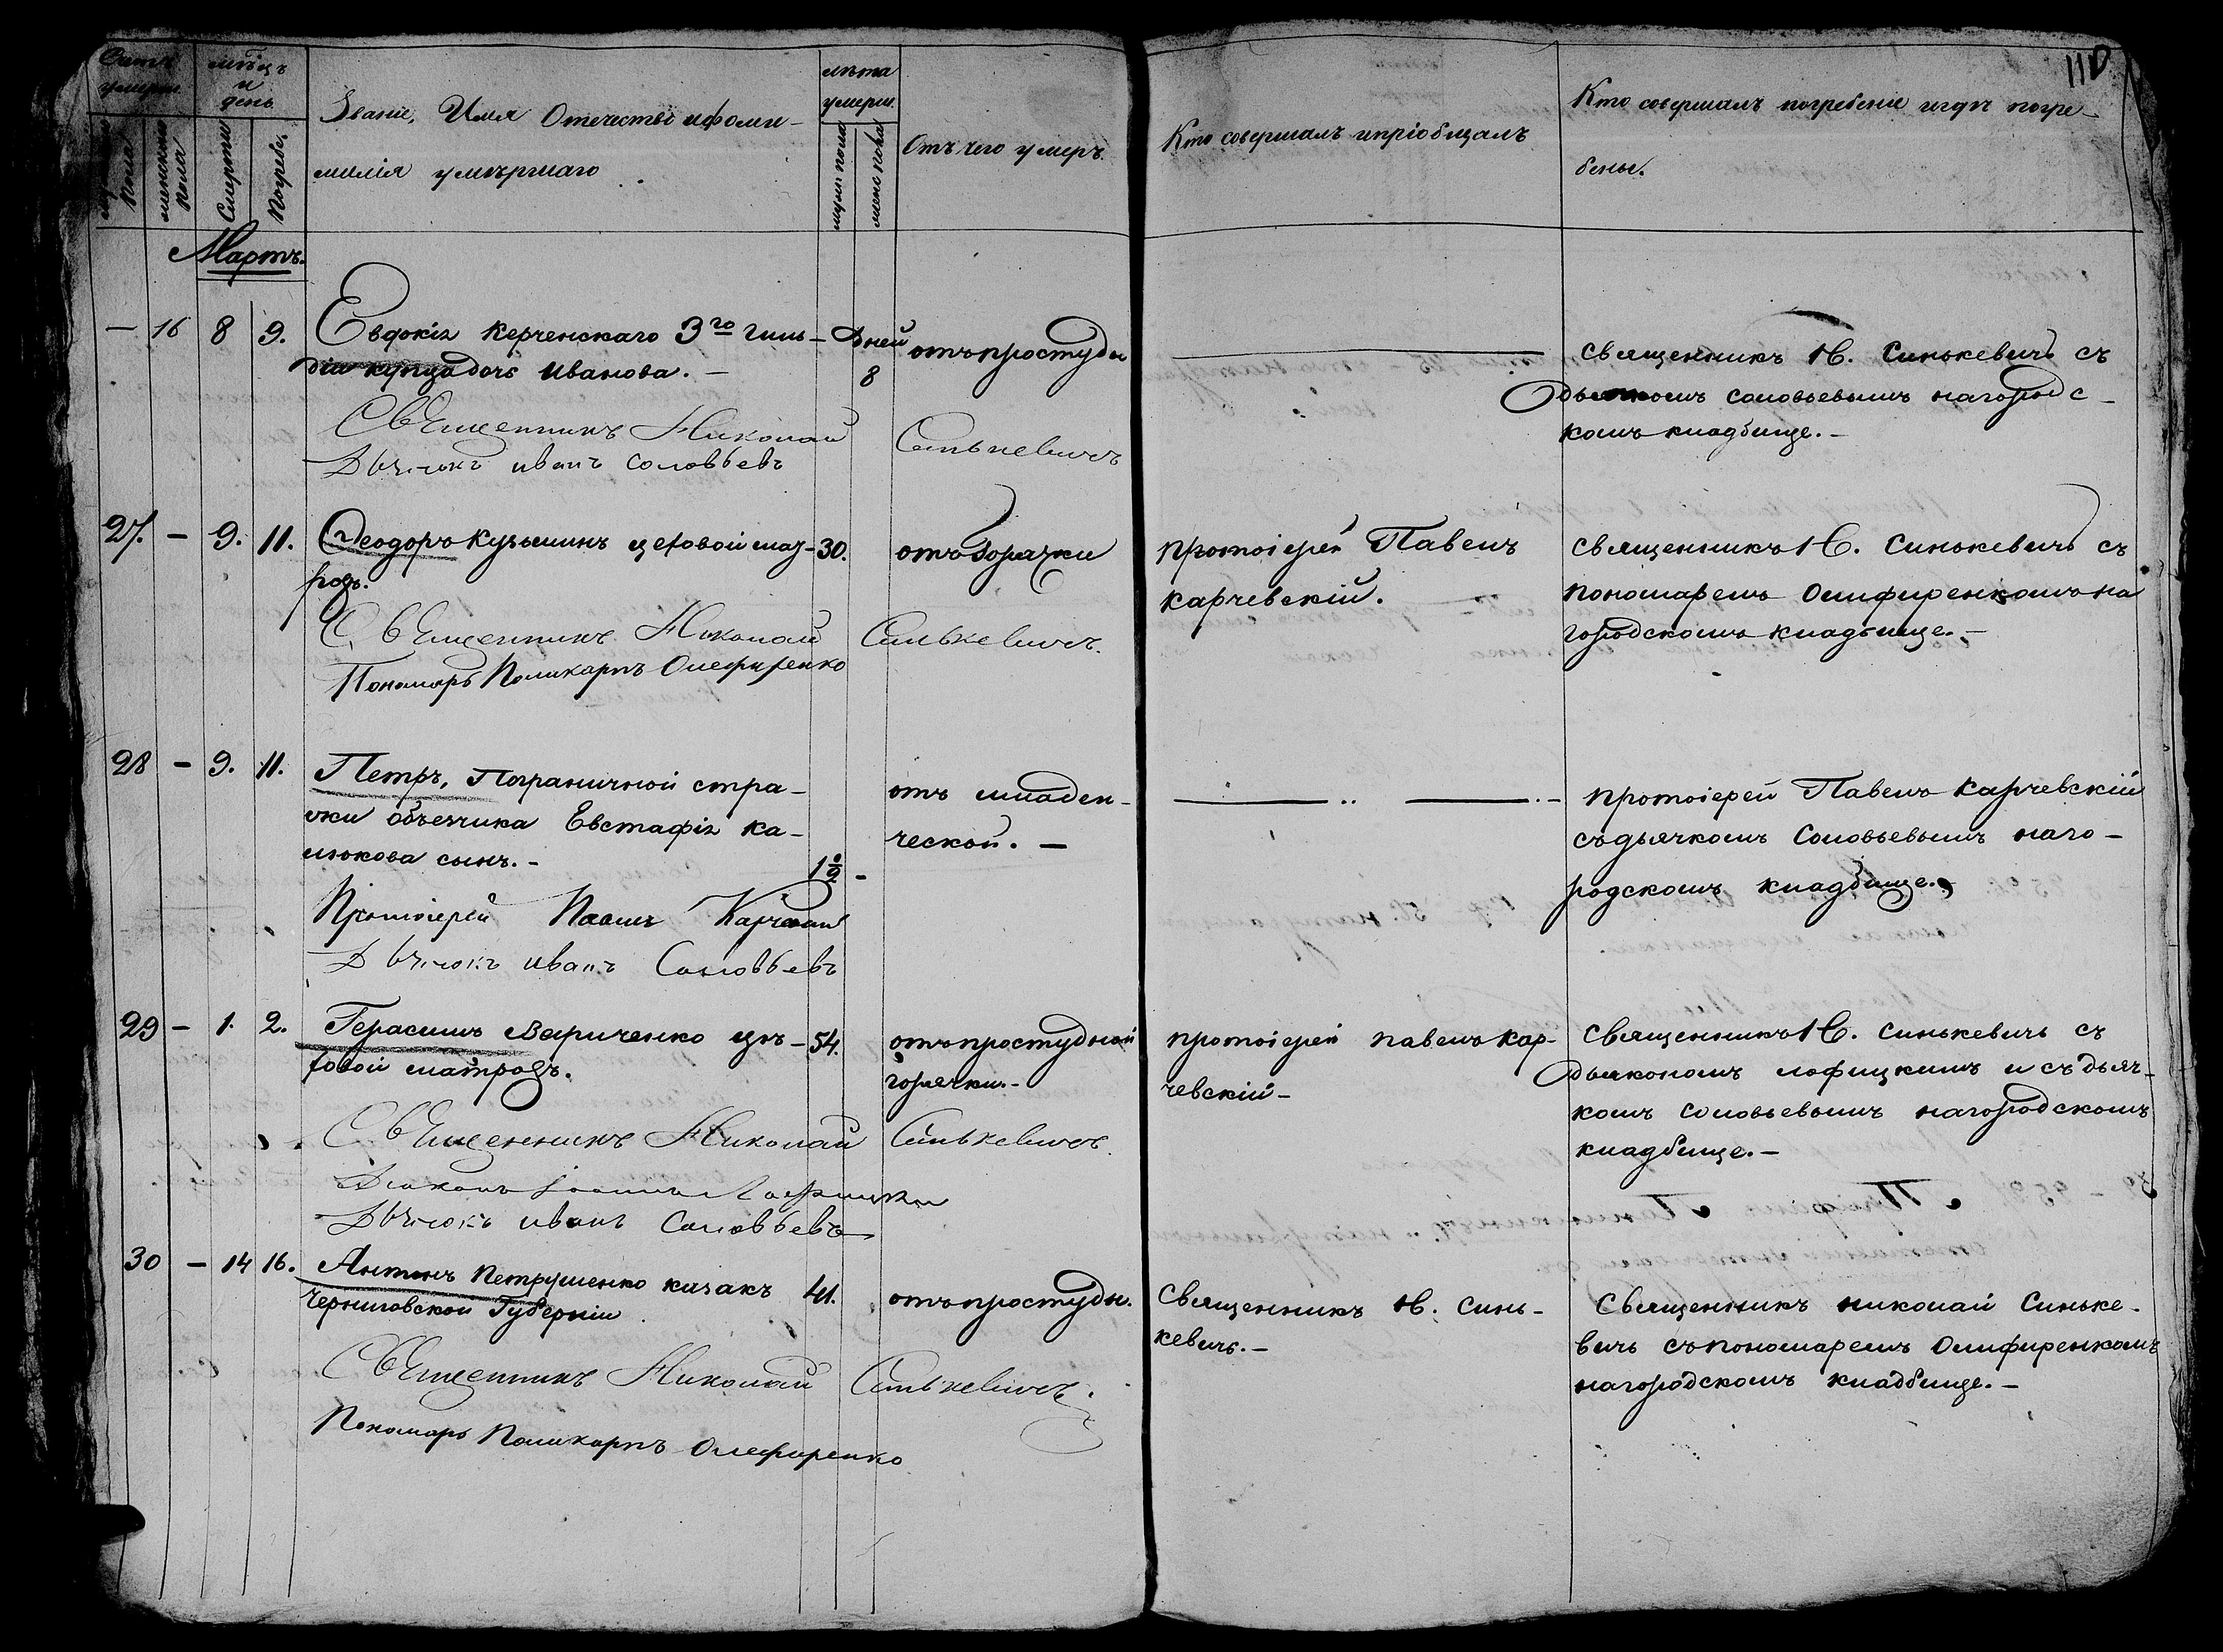 110
Счетъ умерш.
мѣсяцъ и день
Звание, Имя Отечество и фами-
милія умершаго
лѣта умерш.
Отъ чего умеръ.
Кто совершалъ и пріобщалъ
Кто совершалъ погребеніе и гдѣ погре-
бены.
пола
женскаго пола
Смерти
Погребе.
мужс. пола
женс. пола
Мартъ.
— 16 8 9. Евдокія Керченскаго 3го гиль- Дней отъ простуды
діи купца дочь Иванова. — 8
Священникъ Н. Синькевичъ съ
дьячкомъ Соловьевымъ на городс-
комъ кладбище. —
Священникъ Николай Синькевичъ
Дьячокъ Иванъ Соловьевъ
27. — 9. 11. Ѳеодоръ Кузьминъ цеховой мат- 30. отъ Горячки
розъ.
Протоіерей Павелъ
Карчевскій.
Священникъ Н. Синькевичъ съ
пономаремъ Олифиренкомъ на
городскомъ кладбище. —
Священникъ Николай Синькевичъ.
Пономарь Поликарпъ Олефиренко
28 — 9. 11. Петръ, Пограничной стра-
жи объезчика Евстафія Ка-
люкова сынъ. — 1½ —
отъ младен-
ческой. —
Протоіерей Павелъ Карчевскій
съ дьячкомъ Соловьевымъ на го-
родскомъ кладбище.
Протоіерей Павелъ Карчевскій
Дьячокъ Иванъ Соловьевъ
29 — 1. 2. Герасимъ Вариченко це- 54. отъ простудной
ховой матрозъ. горячки. —
Протоіерей Павелъ Кар-
чевскій —
Священникъ Н. Синькевичъ съ
дьякономъ Лофицкимъ и съ дьяч-
комъ Соловьевымъ на городскомъ
кладбище. —
Священникъ Николай Синькевичъ.
Діаконъ Іоаннъ Лофицкій
Дьячокъ Иванъ Соловьевъ
30 — 14 16. Антонъ Петрушенко казакъ 41. отъ простуды.
Черниговской Губерніи
Священникъ Н. Синь-
кевичъ. —
Священникъ Николай Синьке-
вичъ съ пономаремъ Олифиренкомъ
на городскомъ кладбище. —
Священникъ Николай Синькевичъ.
Пономарь Поликарпъ Олефиренко